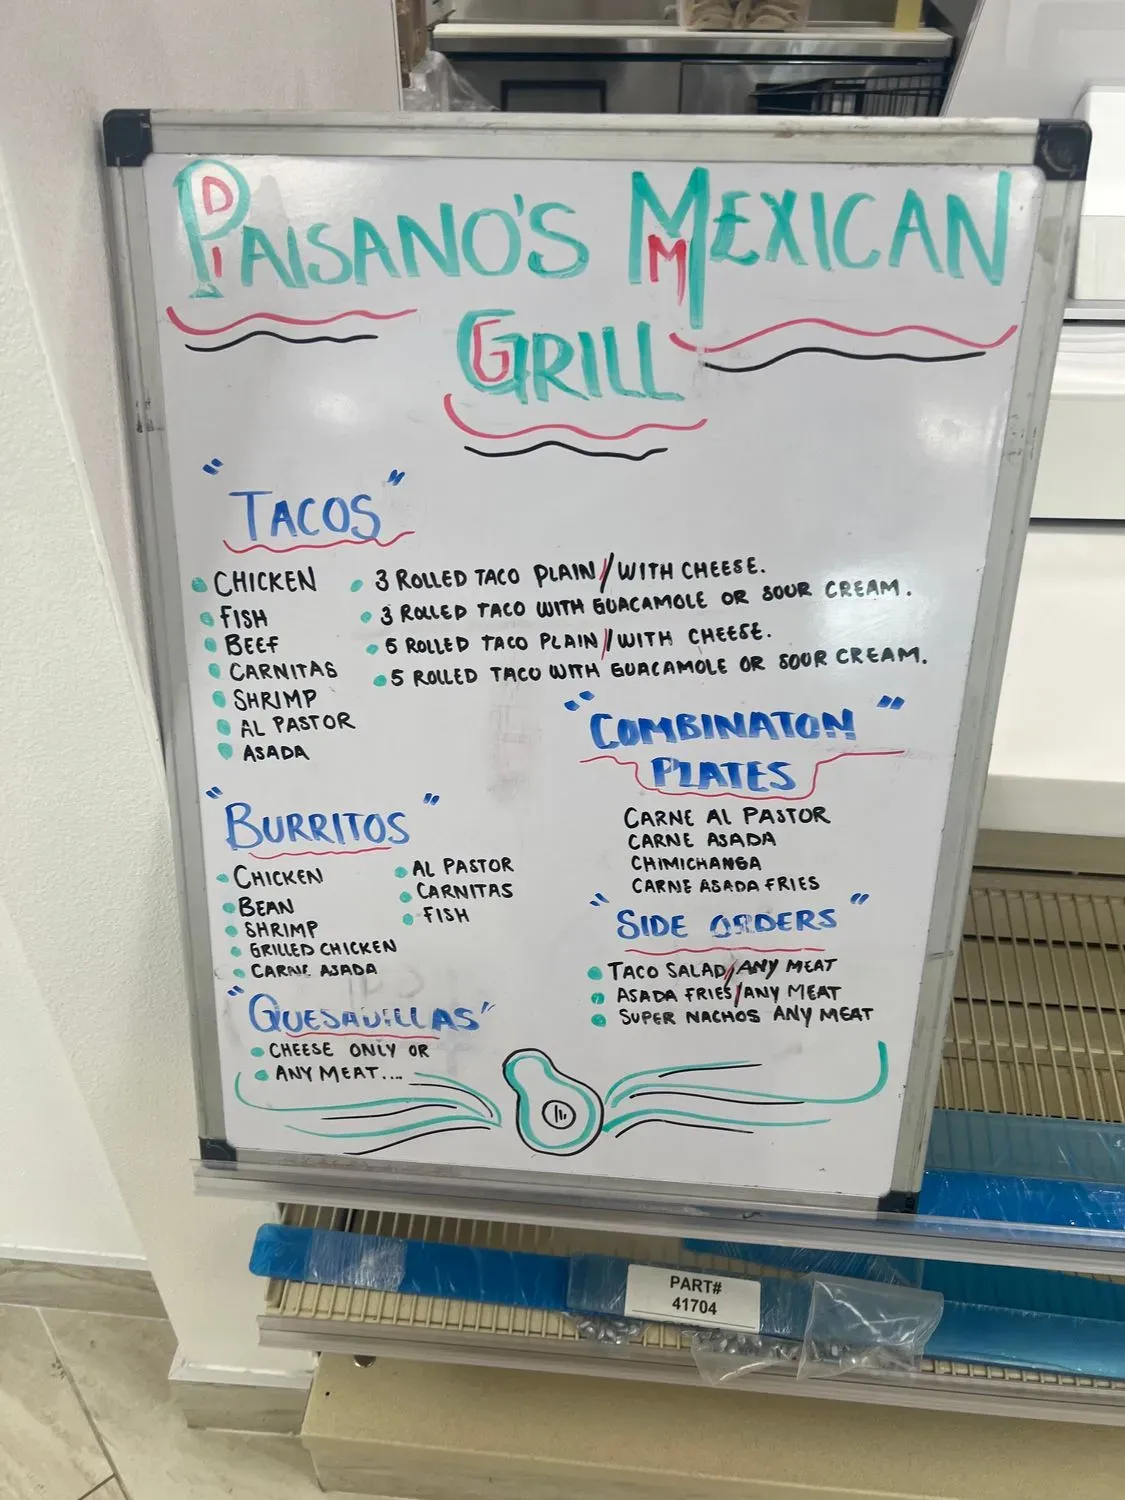 PAISANO'S MEXICAN
GRILL
"TACOS"
CHICKEN
FISH
BEEF
CARNITAS
SHRIMP
AL PASTOR
ASADA
3 ROLLED TACO PLAIN/WITH CHEESE.
3 ROLLED TACO WITH GUACAMOLE OR SOUR CREAM.
5 ROLLED TACO PLAIN/WITH CHEESE.
5 ROLLED TACO WITH GUACAMOLE OR SOUR CREAM.
"COMBINATON"
PLATES
CARNE AL PASTOR
CARNE ASADA
CHIMICHANGA
CARNE ASADA FRIES
"BURRITOS"
CHICKEN
BEAN
SHRIMP
GRILLED CHICKEN
CARNE ASADA
AL PASTOR
CARNITAS
FISH
"SIDE ORDERS"
TACO SALAD/ANY MEAT
ASADA FRIES/ANY MEAT
SUPER NACHOS ANY MEAT
"QUESADILLAS"
CHEESE ONLY OR
ANY MEAT...
PART#
41704